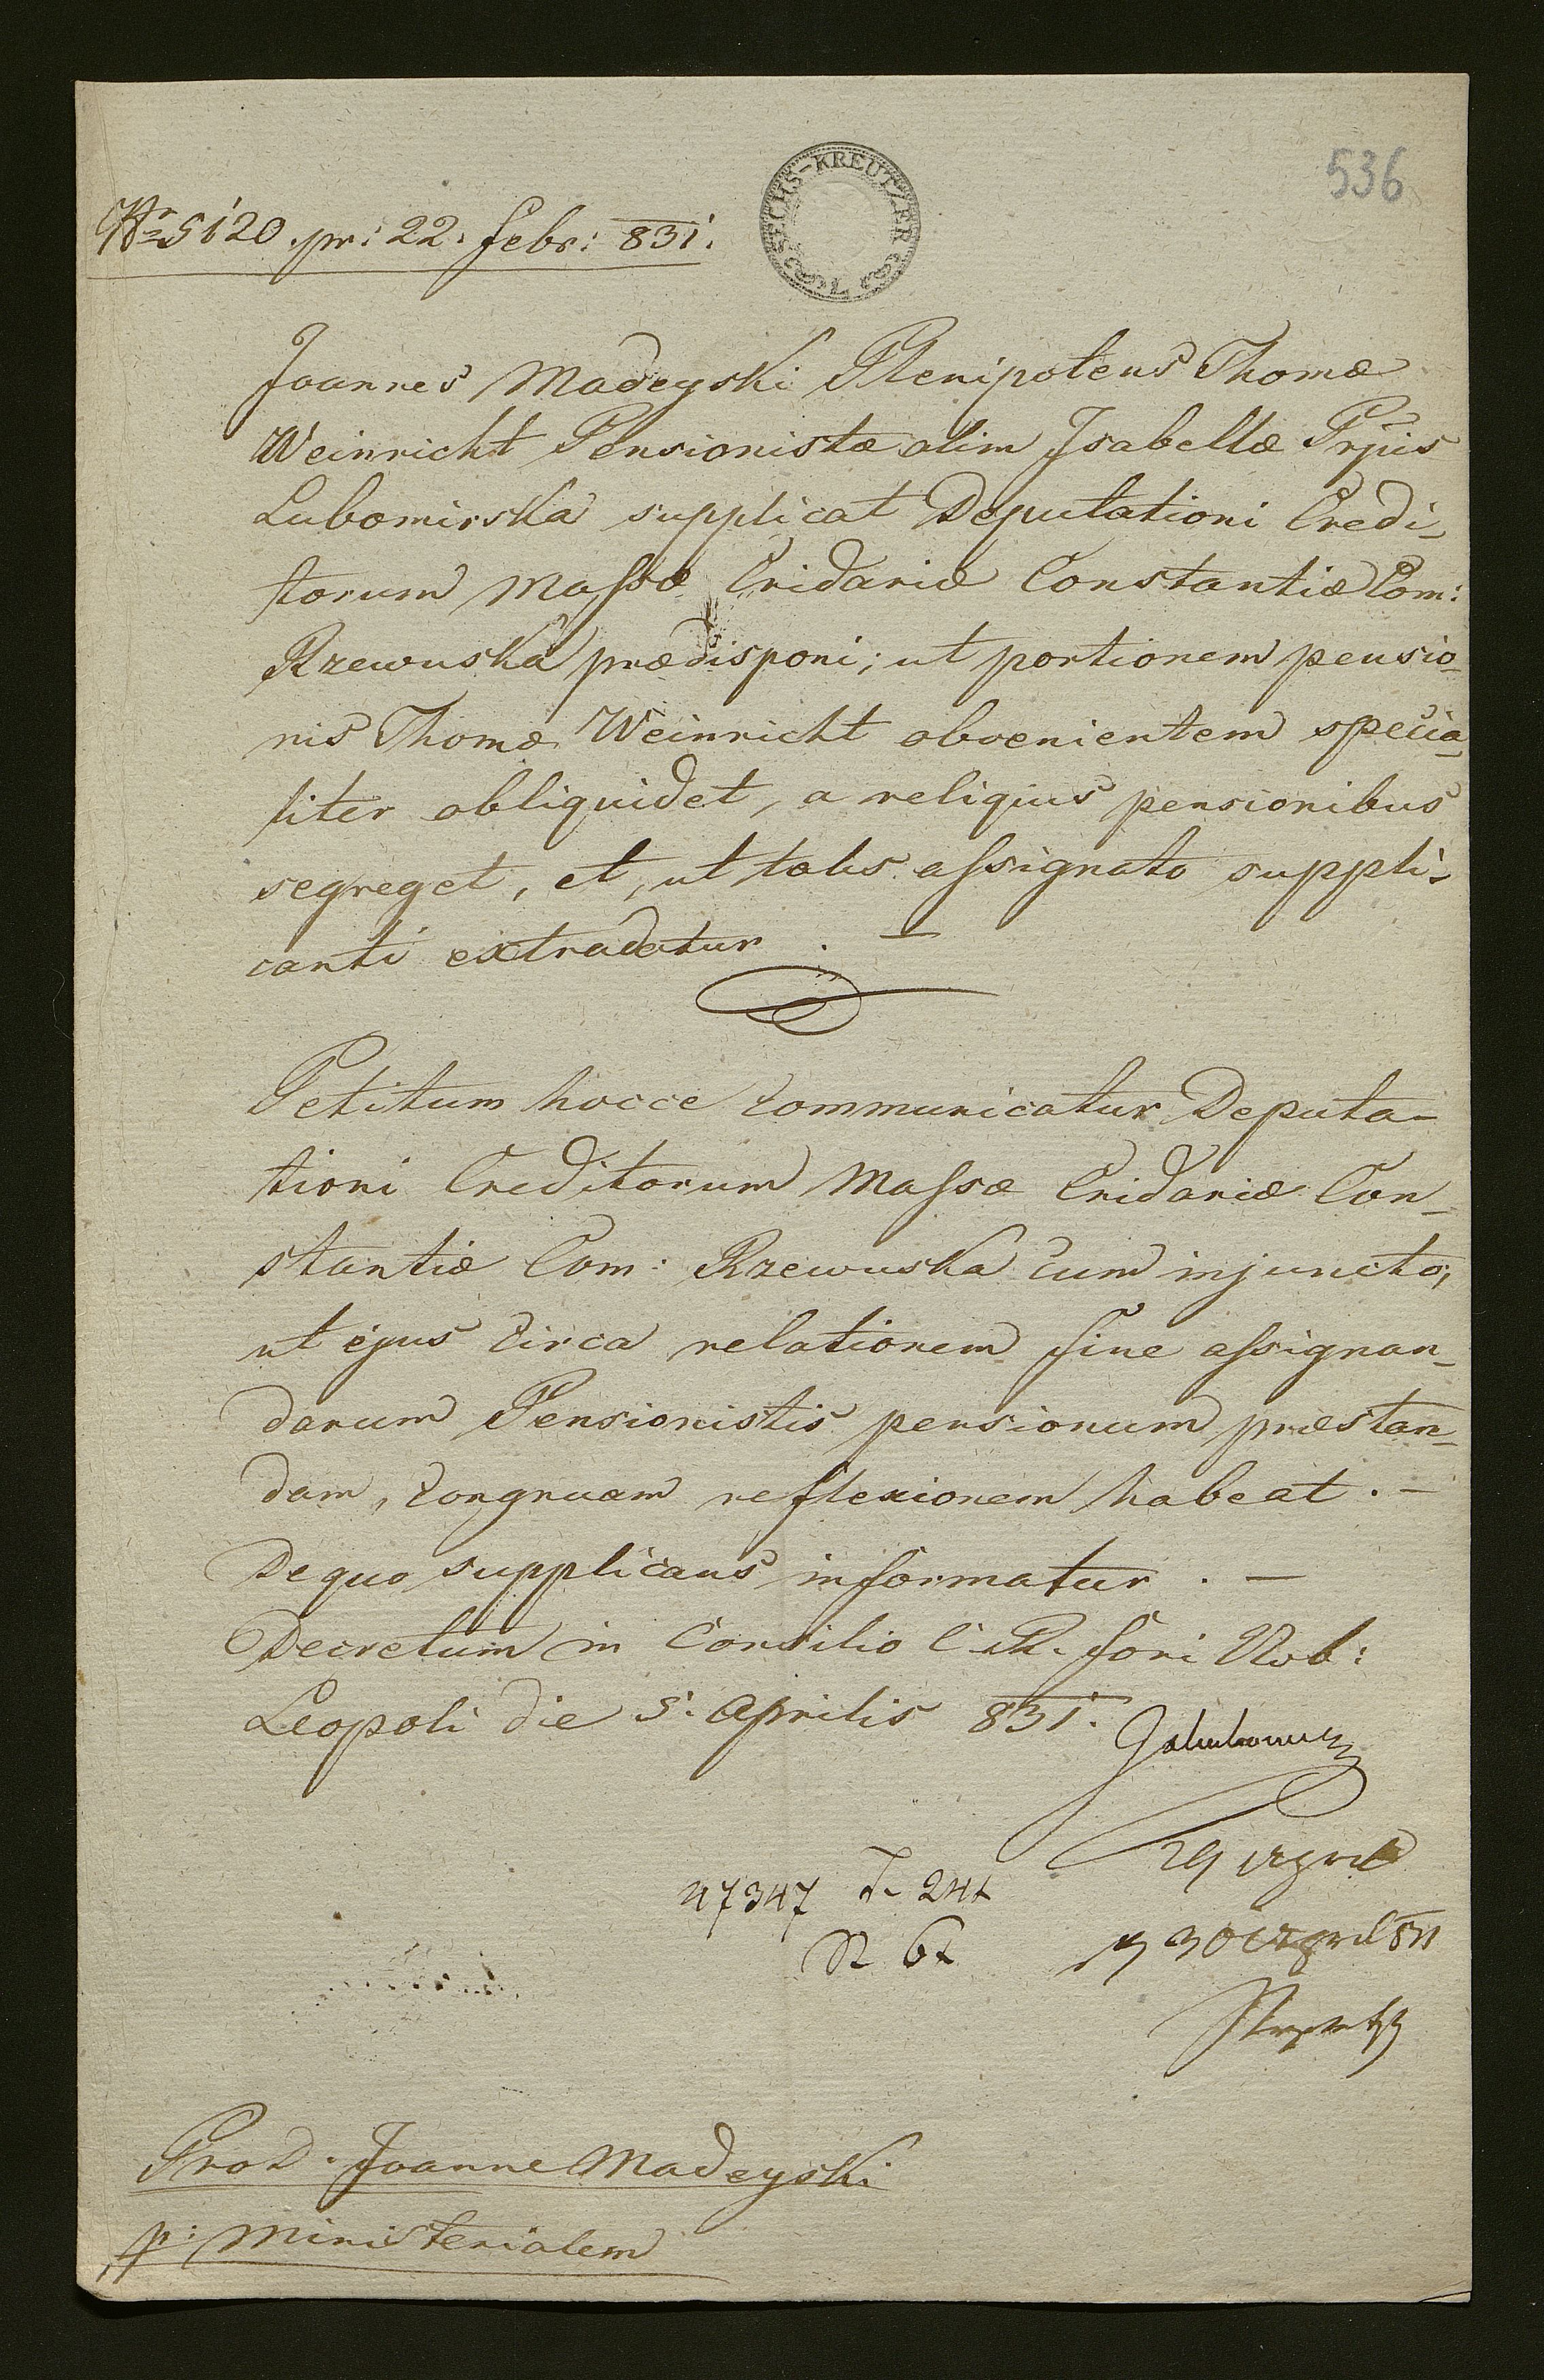 536
SECHS-KREUTZER
Nr 5120. pr: 22. Febr: 831.
Joannes Madeyski Plenipotens Thomæ
Weinricht Pensionistæ olim Isabellæ Prpis
Lubomirska supplicat Deputationi Credi-
torum Massæ Cridariæ Constantiæ Com:
Rzewuska prædisponi; ut portionem pensio-
nis Thomæ Weinricht obvenientem specia-
liter obliquidet, a reliqius pensionibus
segreget, et, ut talis assignato suppli-
canti extradatur. —
Petitum hocce communicatur Deputa-
tioni Creditorum Massæ Cridariæ Con-
stantiæ Com: Rzewuska cum injuncto,
ut ejus circa relationem fine assignan-
darum Pensionistis pensionum præstan-
dam, congruam reflexionem habeat. —
De quo supplicans informatur. —
Decretum in Consilio C. R. Fori Nob:
Leopoli die 5. Aprilis 831.
29 April
47347
30 April 831
Pro D. Joanne Madeyski
p: Ministerialem